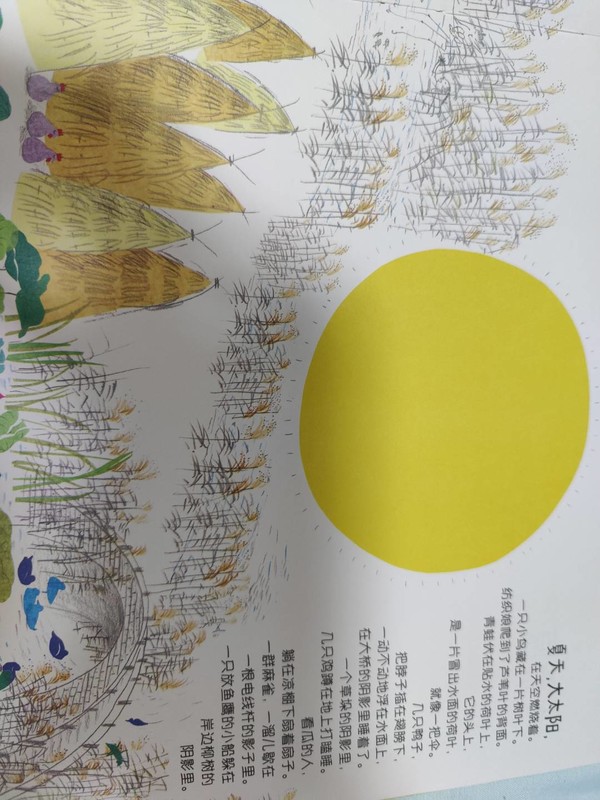 夏天,大太阳,
在天空燃烧着。
一只小鸟藏在一片树叶下。
纺织娘爬到了芦苇叶的背面。
青蛙伏在贴水的荷叶上,
它的头上,
是一片露出水面的荷叶,
就像一把伞。
几只鸭子,
把脖子插在翅膀下,
一动不动地浮在水面上,
在大桥的阴影里睡着了。
一个草垛的阴影里,
几只鸡蹲在地上打瞌睡。
看瓜的人,
躺在凉棚下扇着扇子。
一群麻雀,一溜儿歇在
一根电线杆的影子里。
一只放鱼鹰的小船躲在
岸边柳树的
阴影里。